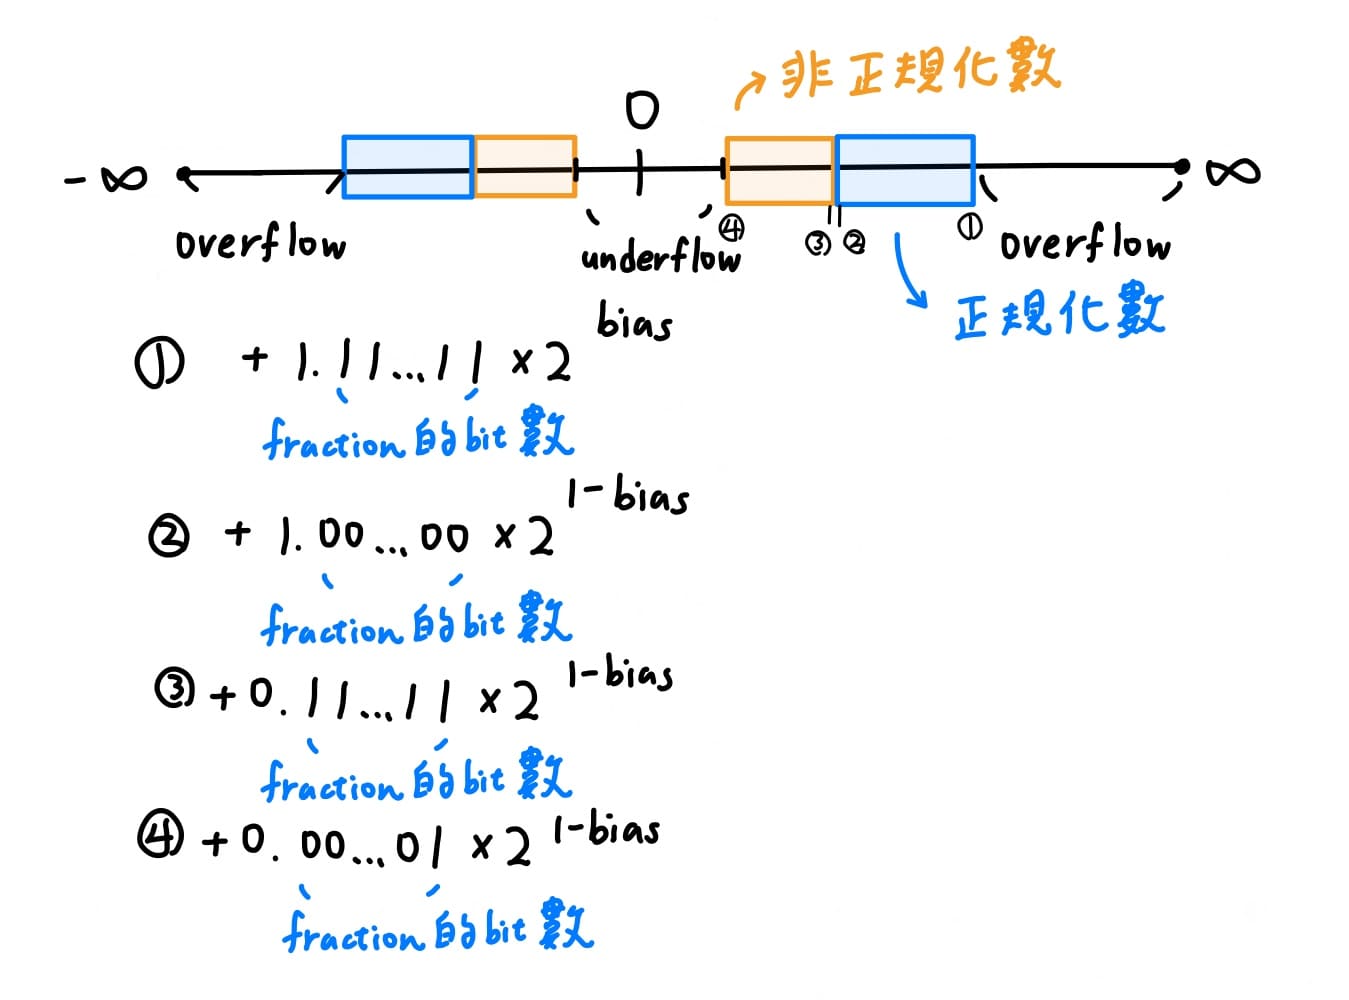 非正規化數
0
-∞ ∞
overflow underflow ④ ③ ② ① overflow
正規化數
① + 1.11...11 × 2^bias
fraction的bit數
② + 1.00...00 × 2^1-bias
fraction的bit數
③ + 0.11...11 × 2^1-bias
fraction的bit數
④ + 0.00...01 × 2^1-bias
fraction的bit數